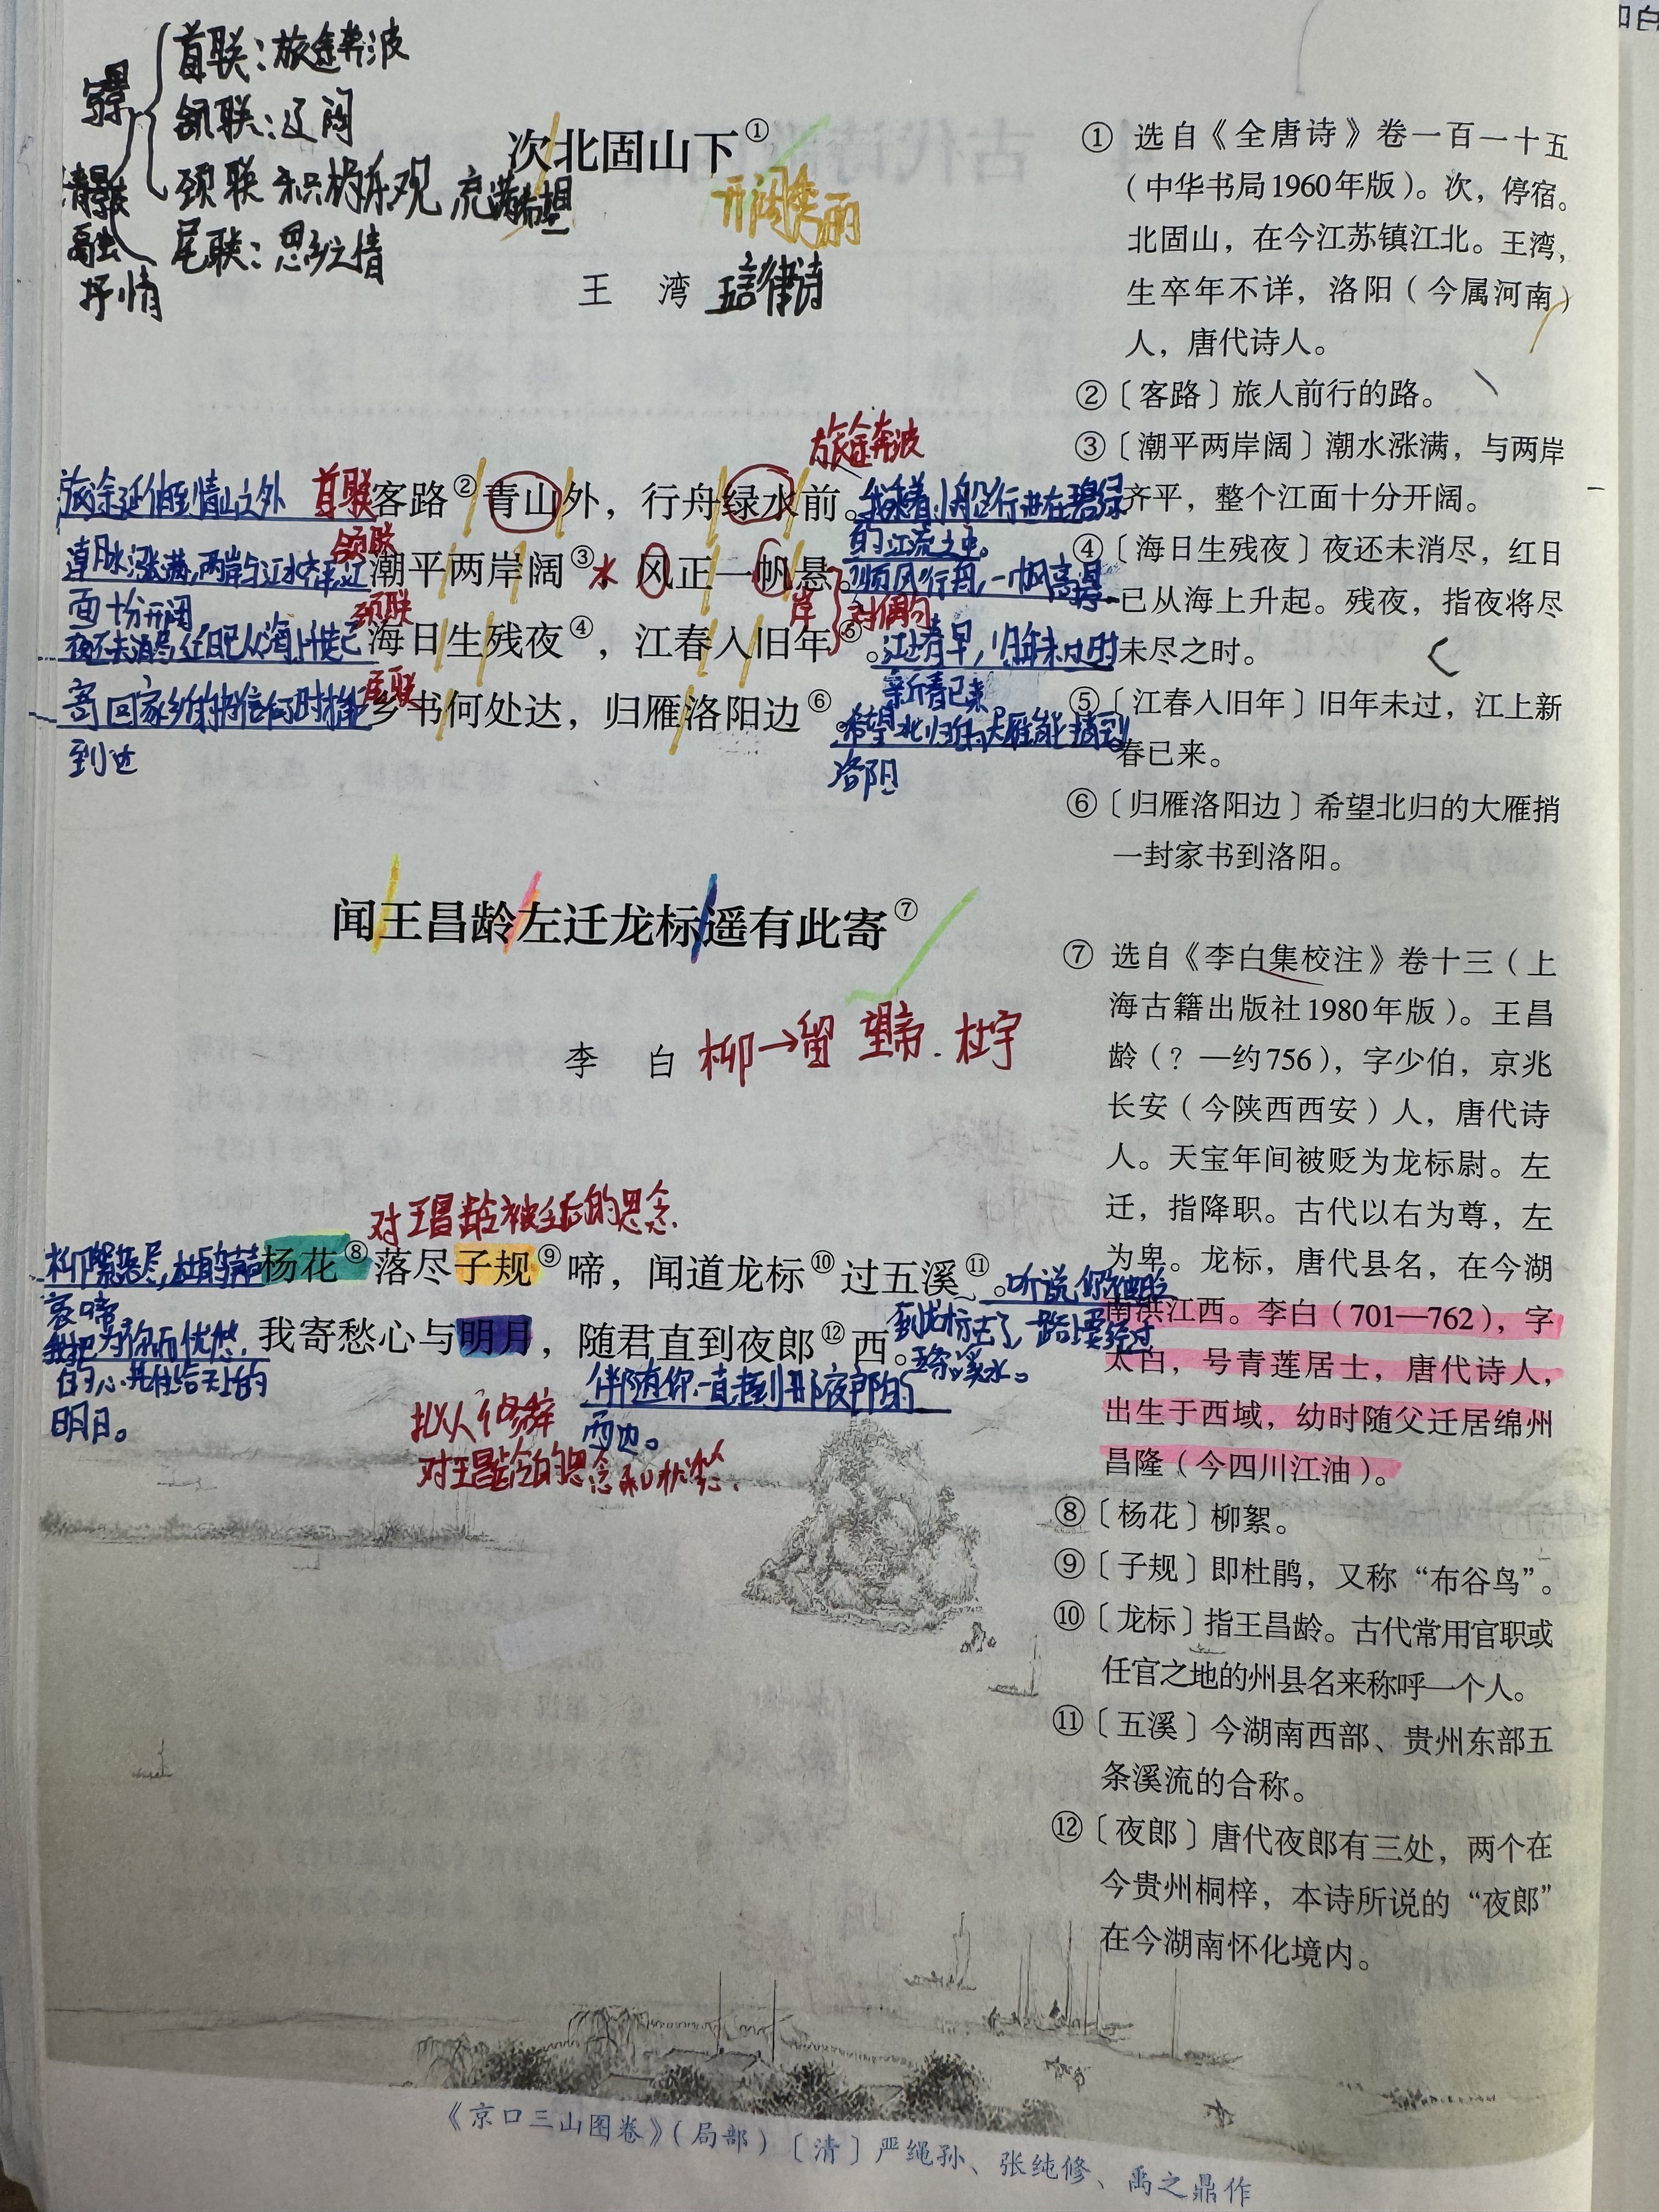 首联：旅途奔波
写景
颔联：辽阔
颈联 积极乐观 充满希望
情景交融
尾联：思乡之情
抒情
次北固山下①
开阔秀丽
王 湾 五言律诗
旅途奔波
旅途延伸到青山之外 首联 客路②青山外，行舟绿水前。我乘着小船行进在碧绿
的江流之中。
潮水涨满，两岸与江水齐平，江 颔联 潮平两岸阔③ 水 风正一帆悬。顺风行舟，一帆高悬
面十分开阔 岸 对偶句
夜还未消尽，红日已从海上升起 颈联 海日生残夜④，江春入旧年⑤。江上春早，旧年未过时
新春已来。
寄回家乡的书信何时才能 尾联 乡书何处达，归雁洛阳边⑥。希望北归的大雁能捎到
到达
洛阳
闻王昌龄左迁龙标遥有此寄⑦
李 白 柳→留 望帝.杜宇
对王昌龄被贬后的思念
柳絮落尽，杜鹃声声 杨花⑧落尽子规⑨啼，闻道龙标⑩过五溪⑪。听说你被贬
哀啼，
到龙标去了，一路上要经过
五条溪水。
我把为你而忧愁 我寄愁心与明月，随君直到夜郎⑫西。
的心托付给天上的
明月。
伴随你一直走到那夜郎的
西边。
拟人修辞
对王昌龄的思念和忧愁.
① 选自《全唐诗》卷一百一十五
（中华书局1960年版）。次，停宿。
北固山，在今江苏镇江北。王湾，
生卒年不详，洛阳（今属河南）
人，唐代诗人。
②〔客路〕旅人前行的路。
③〔潮平两岸阔〕潮水涨满，与两岸
齐平，整个江面十分开阔。
④〔海日生残夜〕夜还未消尽，红日
已从海上升起。残夜，指夜将尽
未尽之时。
⑤〔江春入旧年〕旧年未过，江上新
春已来。
⑥〔归雁洛阳边〕希望北归的大雁捎
一封家书到洛阳。
⑦ 选自《李白集校注》卷十三（上
海古籍出版社1980年版）。王昌
龄（？—约756），字少伯，京兆
长安（今陕西西安）人，唐代诗
人。天宝年间被贬为龙标尉。左
迁，指降职。古代以右为尊，左
为卑。龙标，唐代县名，在今湖
南洪江西。李白（701—762），字
太白，号青莲居士，唐代诗人，
出生于西域，幼时随父迁居绵州
昌隆（今四川江油）。
⑧〔杨花〕柳絮。
⑨〔子规〕即杜鹃，又称“布谷鸟”。
⑩〔龙标〕指王昌龄。古代常用官职或
任官之地的州县名来称呼一个人。
⑪〔五溪〕今湖南西部、贵州东部五
条溪流的合称。
⑫〔夜郎〕唐代夜郎有三处，两个在
今贵州桐梓，本诗所说的“夜郎”
在今湖南怀化境内。
《京口三山图卷》（局部）〔清〕严绳孙、张纯修、禹之鼎作